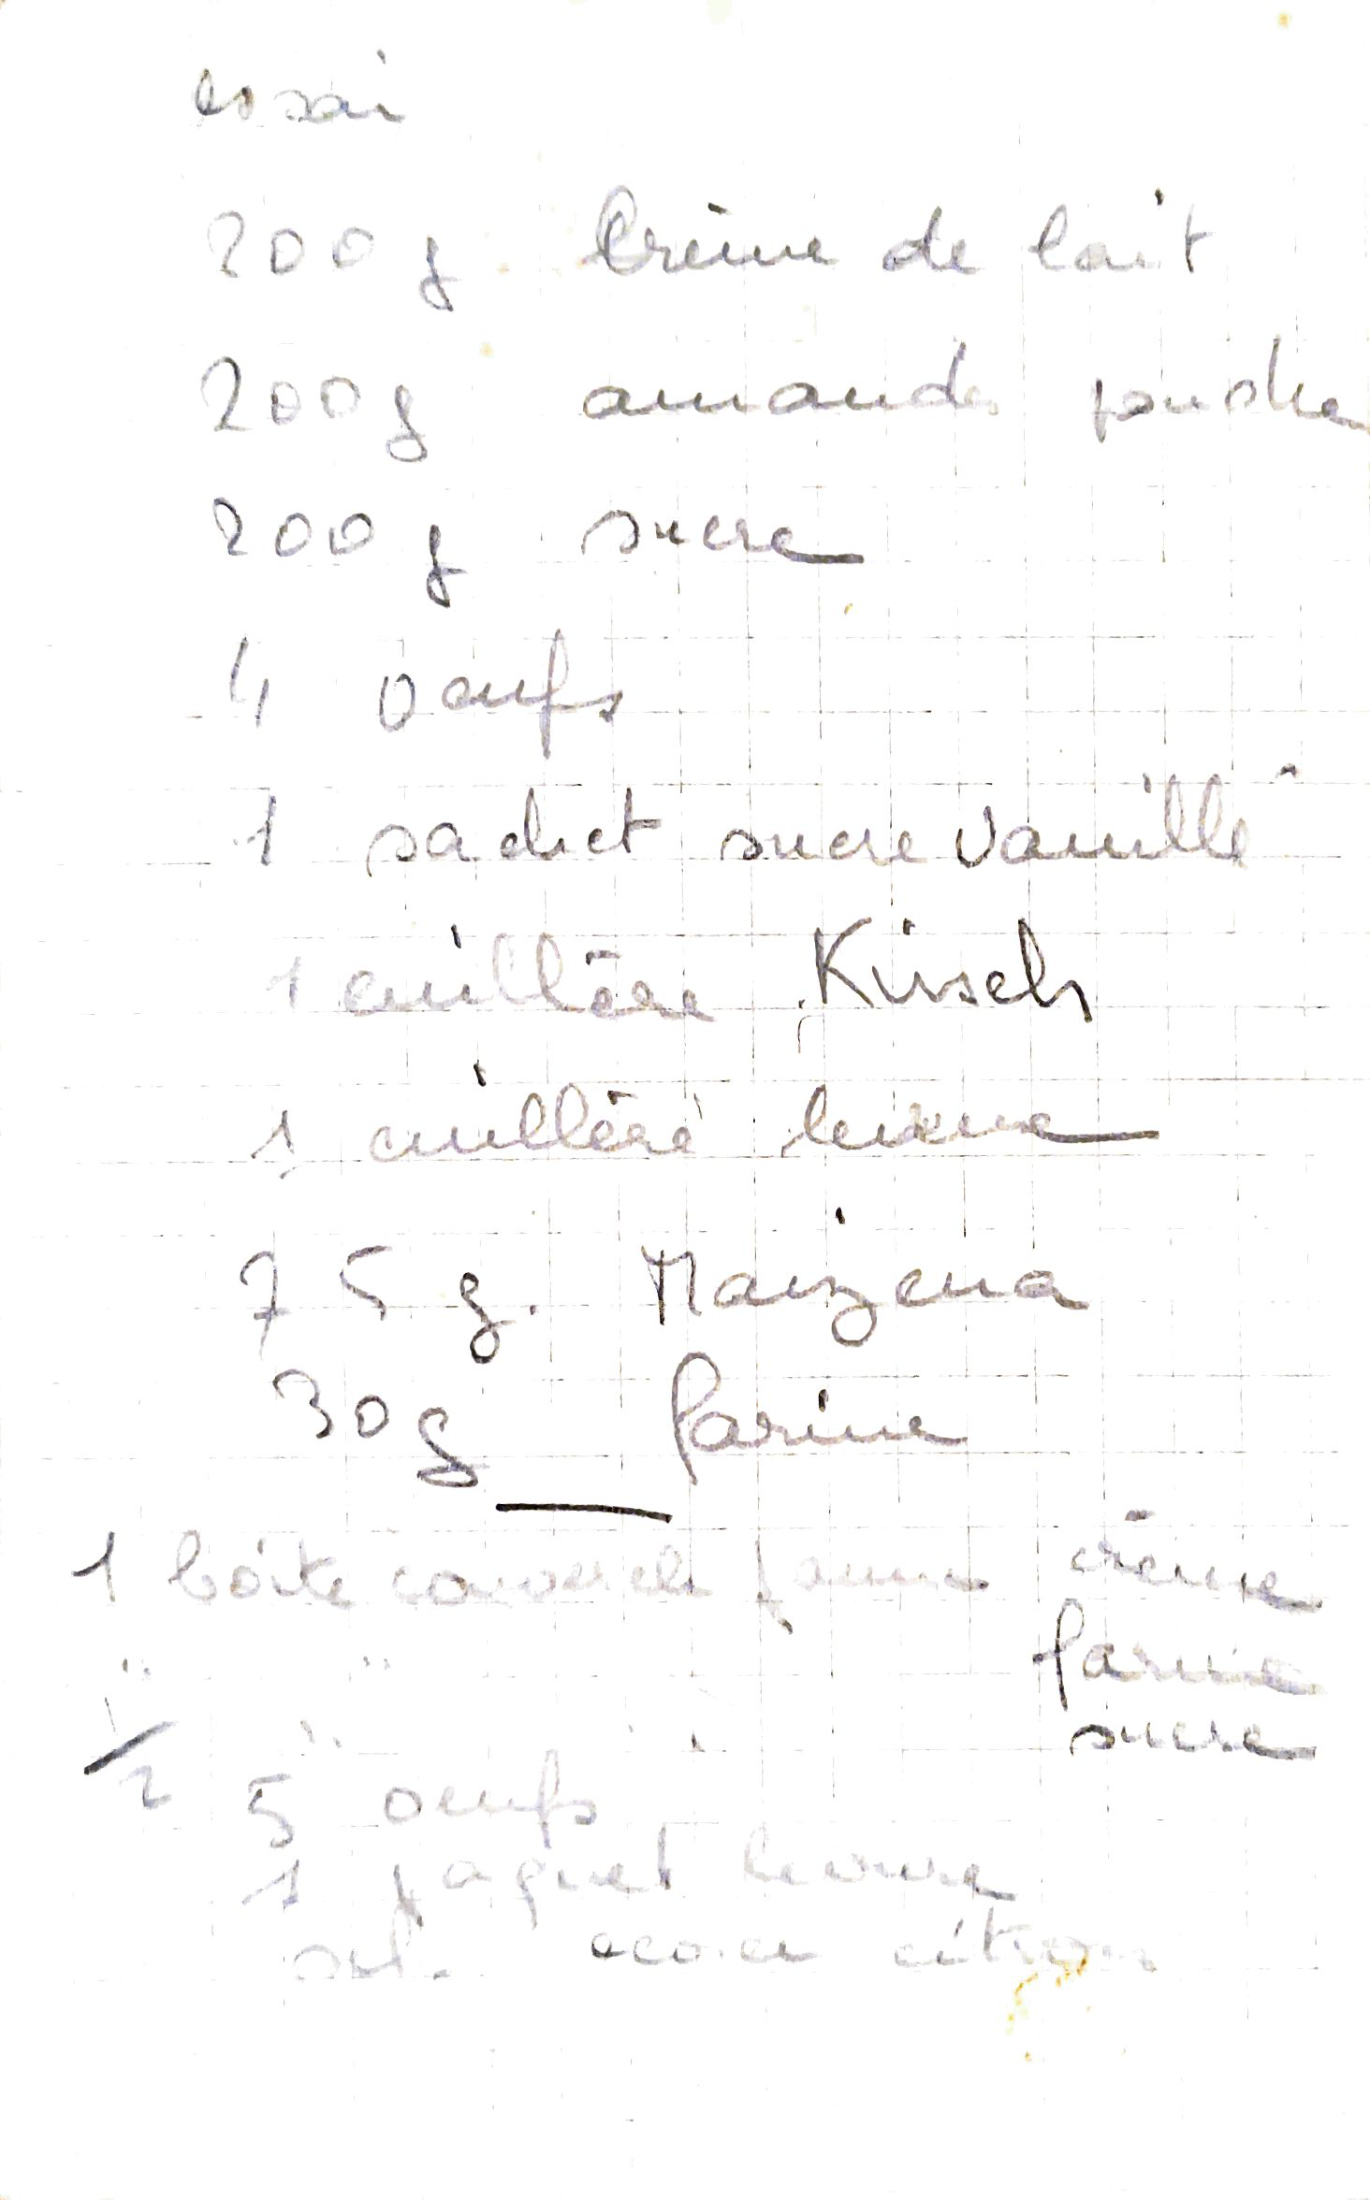 essai
200g Crème de lait
200g amandes poudre
200g sucre
4 oeufs
1 sachet sucre vanillé
1 cuillère Kirsch
1 cuillère levure
75 g. Maizena
30g farine
1 boîte crème
" " farine
1/2 " " sucre
5 oeufs
1 paquet levure
sel. ecorce citron